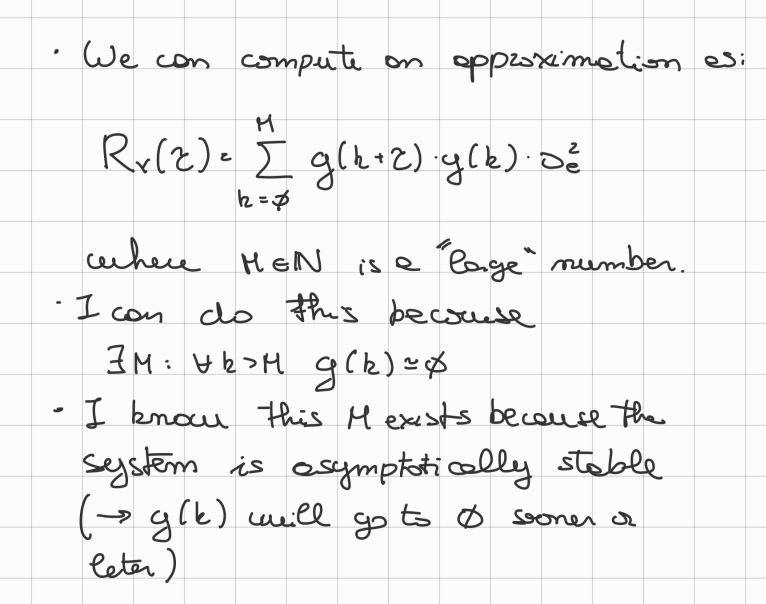 · We can compute an approximation as:
R_v(τ) = Σ_{k=∅}^{M} g(k+τ)·g(k)·σ_e^2
where M∈ℕ is a "large" number.
· I can do this because
∃M: ∀k>M g(k)≃∅
· I know this M exists because the
system is asymptotically stable
(→ g(k) will go to ∅ sooner or
later)